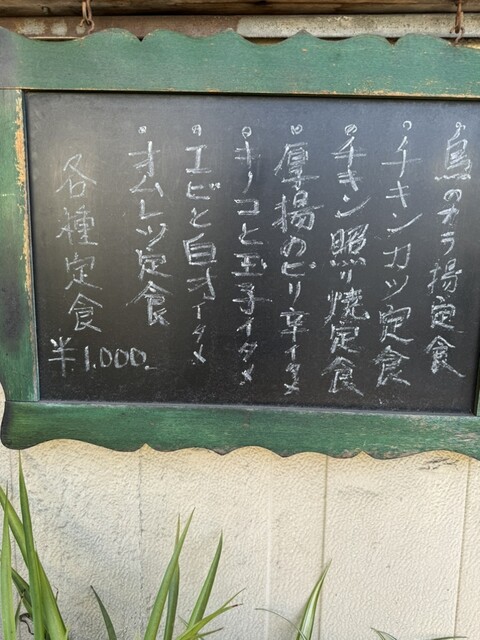 。鳥のカラ揚定食
。チキンカツ定食
。チキン照り焼定食
。厚揚のピリ辛イタメ
。キノコと玉子イタメ
。エビと白才イタメ
。オムレツ定食
各種定食
¥1.000.